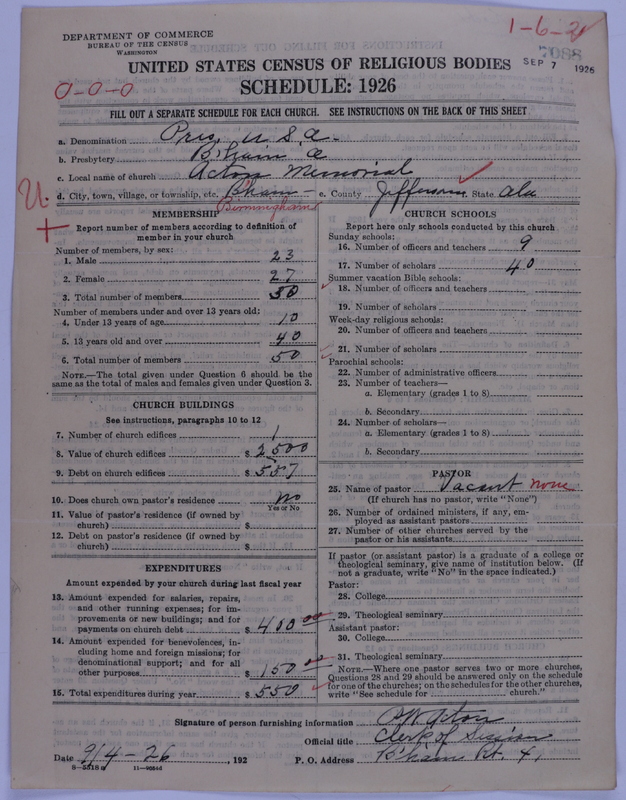 DEPARTMENT OF COMMERCE
BUREAU OF THE CENSUS
WASHINGTON
1-6-2
SEP 7 1926
UNITED STATES CENSUS OF RELIGIOUS BODIES
SCHEDULE: 1926
0-0-0
FILL OUT A SEPARATE SCHEDULE FOR EACH CHURCH. SEE INSTRUCTIONS ON THE BACK OF THIS SHEET
a. Denomination Pres. U.S.A.
b. Presbytery B'ham A
c. Local name of church Acton Memorial
d. City, town, village, or township, etc. B'ham e. County Jefferson State Ala
U.
Birmingham
MEMBERSHIP
Report number of members according to definition of
member in your church
Number of members, by sex:
1. Male 23
2. Female 27
3. Total number of members 50
Number of members under and over 13 years old:
4. Under 13 years of age 10
5. 13 years old and over 40
6. Total number of members 50
NOTE.—The total given under Question 6 should be the
same as the total of males and females given under Question 3.
CHURCH BUILDINGS
See instructions, paragraphs 10 to 12
7. Number of church edifices 1
8. Value of church edifices $ 2500
9. Debt on church edifices $ 557
10. Does church own pastor's residence No
Yes or No
11. Value of pastor's residence (if owned by
church) $
12. Debt on pastor's residence (if owned by
church) $
EXPENDITURES
Amount expended by your church during last fiscal year
13. Amount expended for salaries, repairs,
and other running expenses; for im-
provements or new buildings; and for
payments on church debt $ 400 00
14. Amount expended for benevolences, in-
cluding home and foreign missions; for
denominational support; and for all
other purposes $ 150 00
15. Total expenditures during year $ 550
CHURCH SCHOOLS
Report here only schools conducted by this church
Sunday schools:
16. Number of officers and teachers 9
17. Number of scholars 40
Summer vacation Bible schools:
18. Number of officers and teachers
19. Number of scholars
Week-day religious schools:
20. Number of officers and teachers
21. Number of scholars
Parochial schools:
22. Number of administrative officers
23. Number of teachers—
a. Elementary (grades 1 to 8)
b. Secondary
24. Number of scholars—
a. Elementary (grades 1 to 8)
b. Secondary
PASTOR
25. Name of pastor Vacant none
(If church has no pastor, write "None")
26. Number of ordained ministers, if any, em-
ployed as assistant pastors
27. Number of other churches served by the
pastor or his assistants
If pastor (or assistant pastor) is a graduate of a college or
theological seminary, give name of institution below. (If
not a graduate, write "No" in the space indicated.)
Pastor:
28. College
29. Theological seminary
Assistant pastor:
30. College
31. Theological seminary
NOTE.—Where one pastor serves two or more churches,
Questions 28 and 29 should be answered only on the schedule
for one of the churches; on the schedules for the other churches,
write "See schedule for church."
Signature of person furnishing information Acton
Official title Clerk of Session
Date 9/4-26, 192 P. O. Address B'ham Rt. 4,